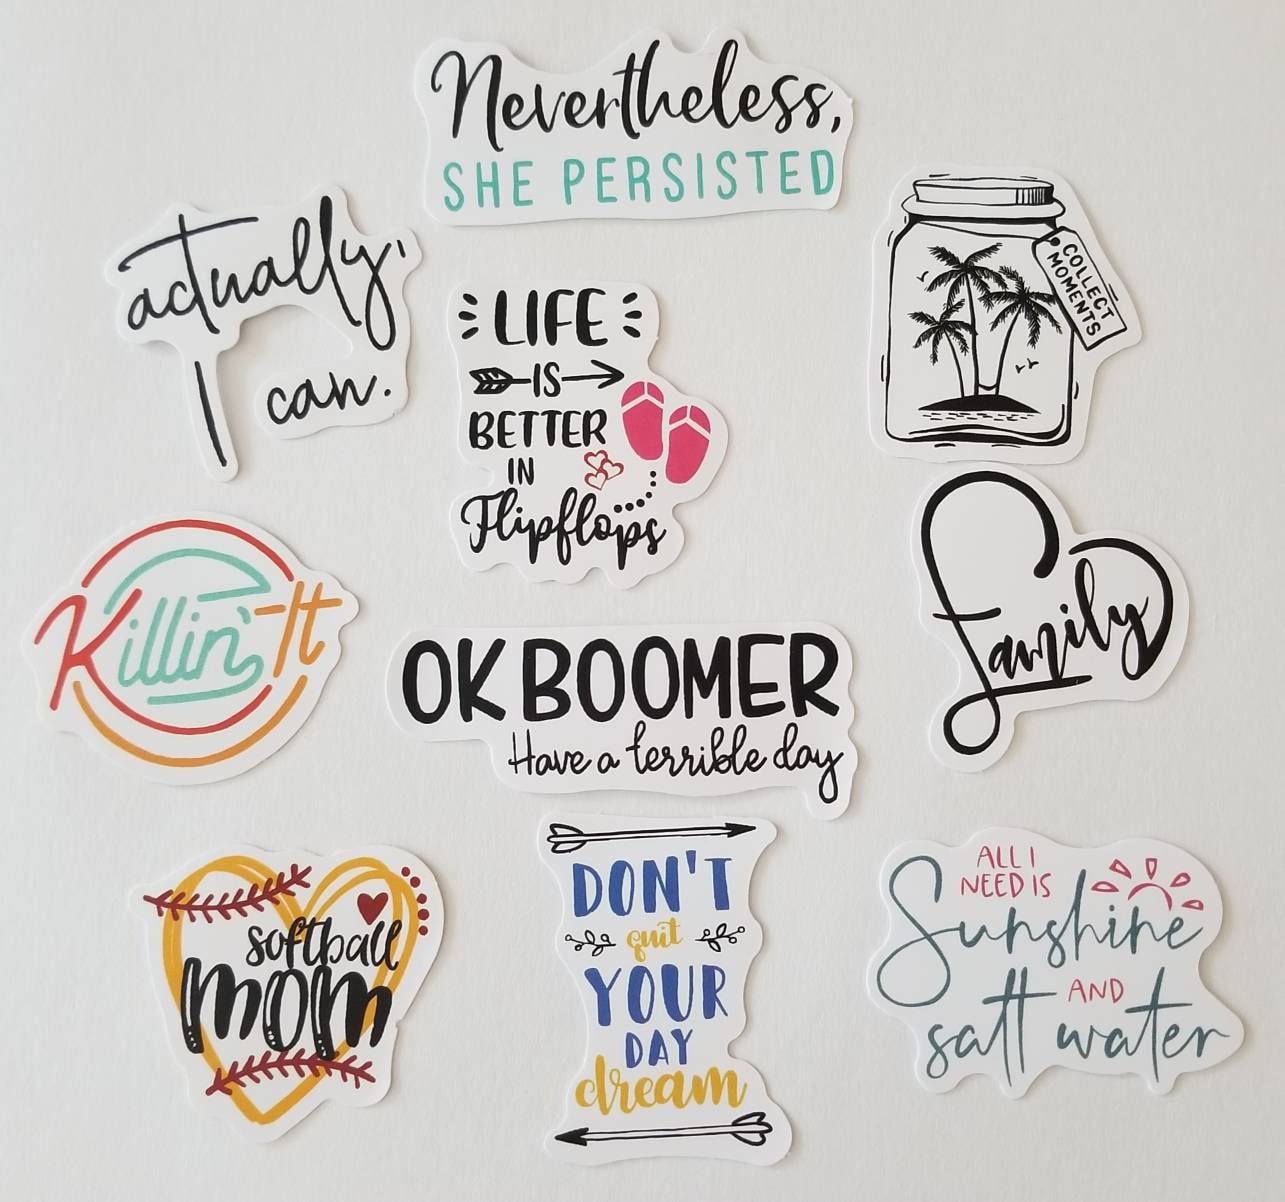 Nevertheless,
SHE PERSISTED
actually,
I can.
COLLECT
MOMENTS
LIFE
IS
BETTER
IN
Flipflops
Killin' It
family
OK BOOMER
Have a terrible day
softball
mom
DON'T
quit
YOUR
DAY
dream
ALL I
NEED IS
Sunshine
AND
salt water